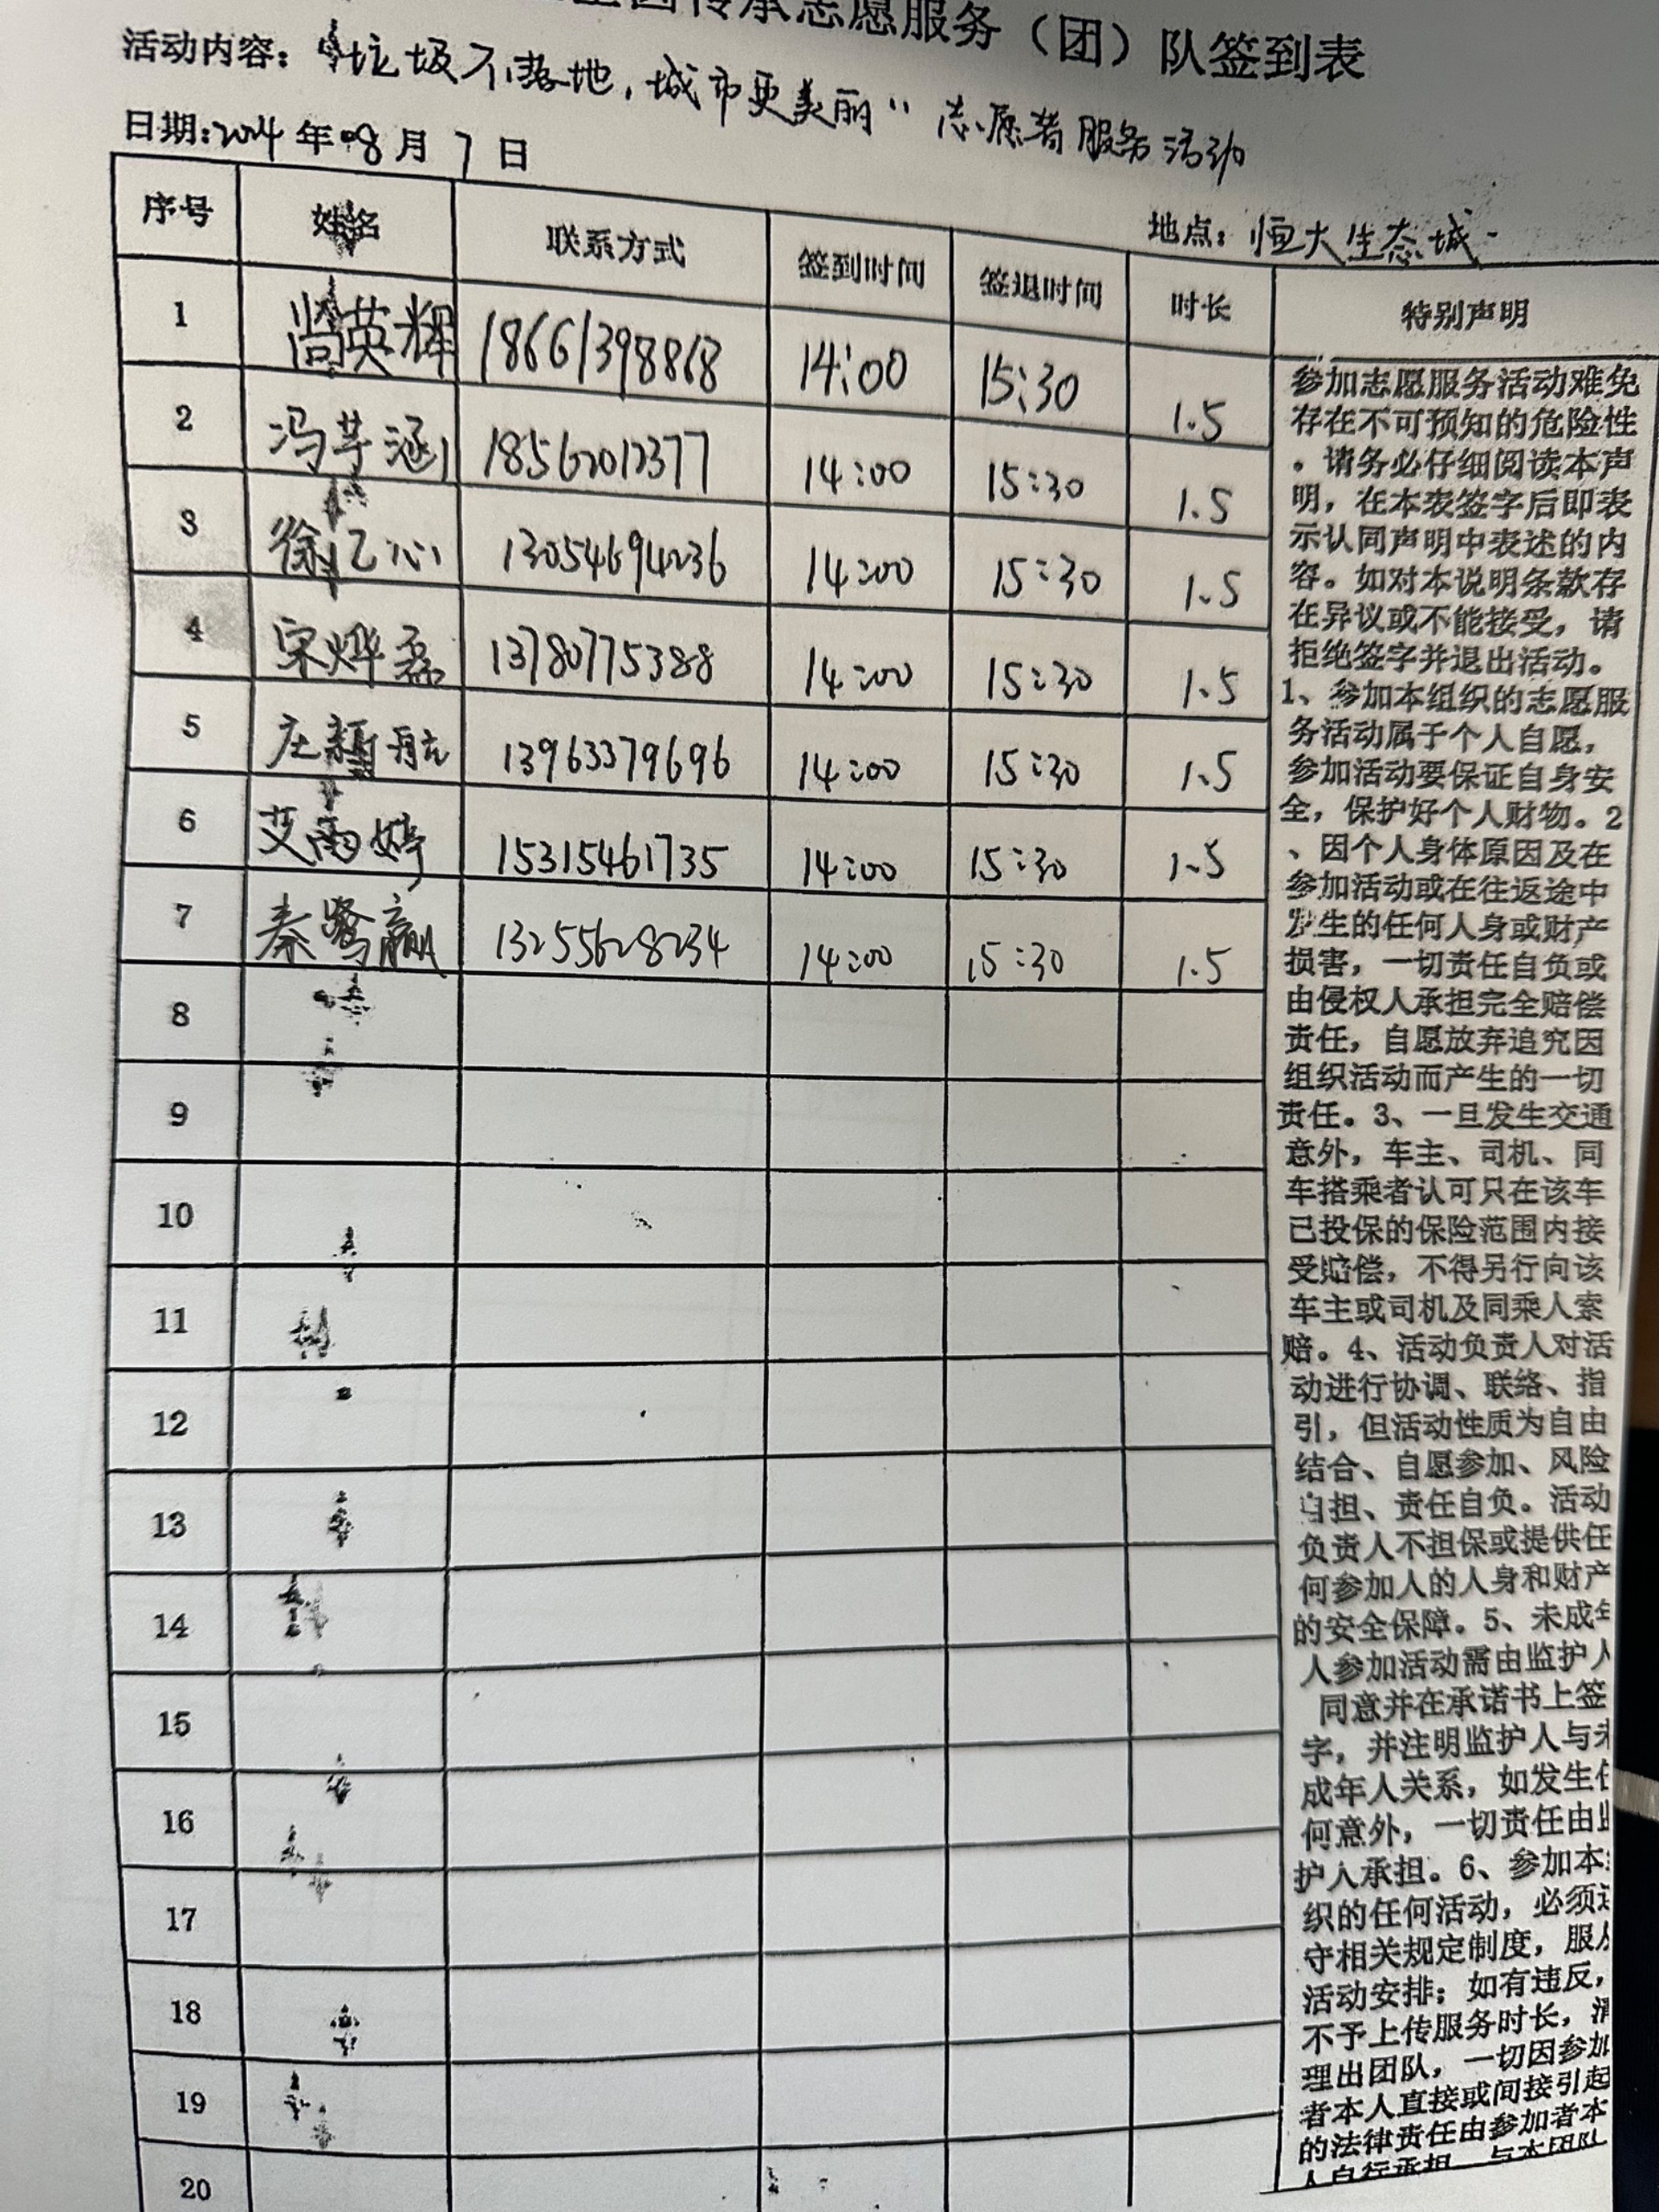 传承志愿服务（团）队签到表
活动内容：“垃圾不落地，城市更美丽”志愿者服务活动
日期：2024年8月7日
地点：恒大生态城
序号 姓名 联系方式 签到时间 签退时间 时长 特别声明
1 尚英辉 18661398868 14:00 15:30 1.5
2 冯芋涵 18562012377 14:00 15:30 1.5
3 徐亿心 13054694236 14:00 15:30 1.5
4 宋烨磊 13780775388 14:00 15:30 1.5
5 庄 航 13963379696 14:00 15:30 1.5
6 艾雨婷 15315461735 14:00 15:30 1.5
7 秦鹭赢 13255628234 14:00 15:30 1.5
8
9
10
11
12
13
14
15
16
17
18
19
20
参加志愿服务活动难免
存在不可预知的危险性
。请务必仔细阅读本声
明，在本表签字后即表
示认同声明中表述的内
容。如对本说明条款存
在异议或不能接受，请
拒绝签字并退出活动。
1、参加本组织的志愿服
务活动属于个人自愿，
参加活动要保证自身安
全，保护好个人财物。2
、因个人身体原因及在
参加活动或在往返途中
发生的任何人身或财产
损害，一切责任自负或
由侵权人承担完全赔偿
责任，自愿放弃追究因
组织活动而产生的一切
责任。3、一旦发生交通
意外，车主、司机、同
车搭乘者认可只在该车
已投保的保险范围内接
受赔偿，不得另行向该
车主或司机及同乘人索
赔。4、活动负责人对活
动进行协调、联络、指
引，但活动性质为自由
结合、自愿参加、风险
自担、责任自负。活动
负责人不担保或提供任
何参加人的人身和财产
的安全保障。5、未成年
人参加活动需由监护人
同意并在承诺书上签
字，并注明监护人与未
成年人关系，如发生任
何意外，一切责任由监
护人承担。6、参加本组
织的任何活动，必须遵
守相关规定制度，服从
活动安排；如有违反，
不予上传服务时长，清
理出团队，一切因参加
者本人直接或间接引起
的法律责任由参加者本
人自行承担，与本团队